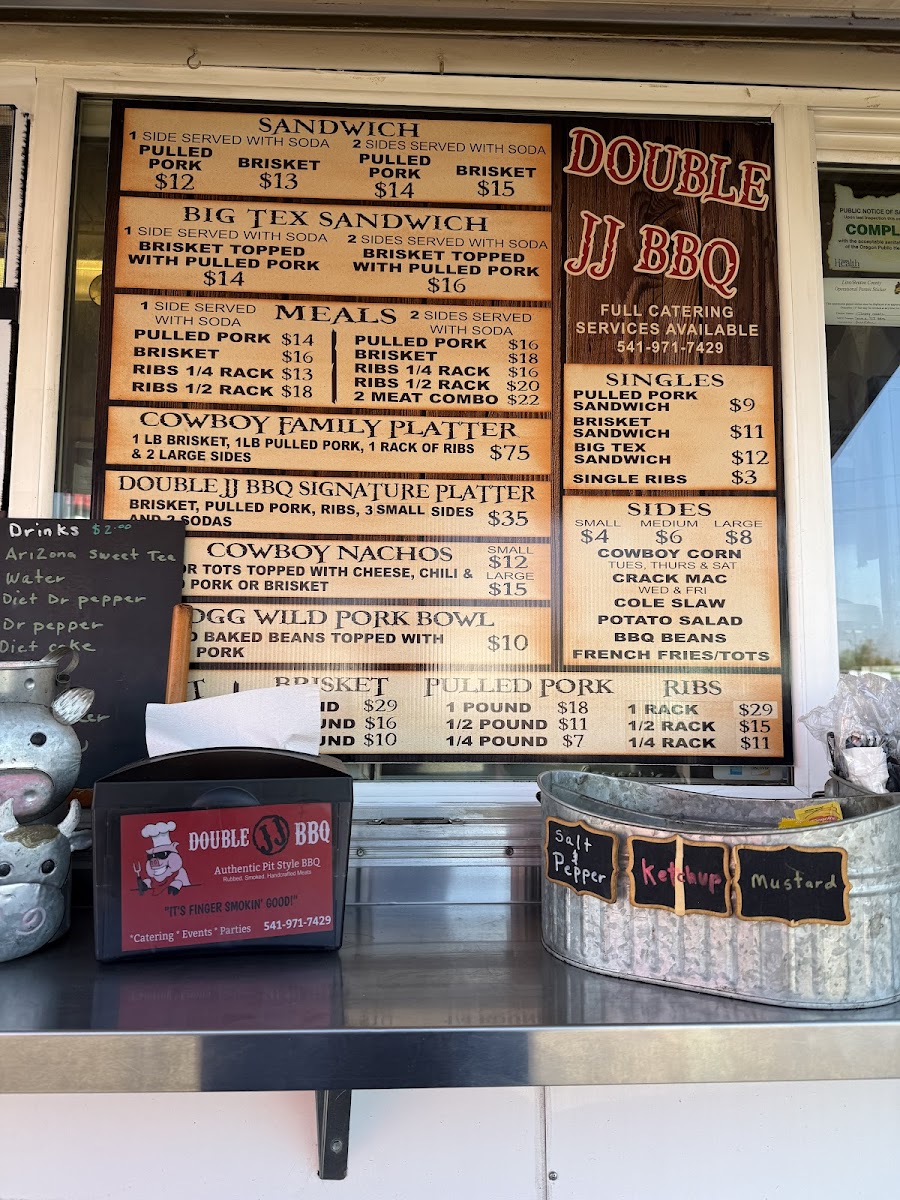 SANDWICH
1 SIDE SERVED WITH SODA
2 SIDES SERVED WITH SODA
PULLED PORK $12
BRISKET $13
PULLED PORK $14
BRISKET $15
BIG TEX SANDWICH
1 SIDE SERVED WITH SODA
2 SIDES SERVED WITH SODA
BRISKET TOPPED
WITH PULLED PORK
$14
BRISKET TOPPED
WITH PULLED PORK
$16
MEALS
1 SIDE SERVED
WITH SODA
PULLED PORK $14
BRISKET $16
RIBS 1/4 RACK $13
RIBS 1/2 RACK $18
2 SIDES SERVED
WITH SODA
PULLED PORK $16
BRISKET $18
RIBS 1/4 RACK $16
RIBS 1/2 RACK $20
2 MEAT COMBO $22
COWBOY FAMILY PLATTER
1 LB BRISKET, 1LB PULLED PORK, 1 RACK OF RIBS
& 2 LARGE SIDES $75
DOUBLE JJ BBQ SIGNATURE PLATTER
BRISKET, PULLED PORK, RIBS, 3 SMALL SIDES
AND 2 SODAS $35
COWBOY NACHOS
OR TOTS TOPPED WITH CHEESE, CHILI &
PORK OR BRISKET
SMALL
$12
LARGE
$15
OGG WILD PORK BOWL
BAKED BEANS TOPPED WITH
PORK
$10
BRISKET
$29
$16
$10
PULLED PORK
1 POUND $18
1/2 POUND $11
1/4 POUND $7
RIBS
1 RACK $29
1/2 RACK $15
1/4 RACK $11
DOUBLE
JJ BBQ
FULL CATERING
SERVICES AVAILABLE
541-971-7429
SINGLES
PULLED PORK
SANDWICH $9
BRISKET
SANDWICH $11
BIG TEX
SANDWICH $12
SINGLE RIBS $3
SIDES
SMALL MEDIUM LARGE
$4 $6 $8
COWBOY CORN
TUES, THURS & SAT
CRACK MAC
WED & FRI
COLE SLAW
POTATO SALAD
BBQ BEANS
FRENCH FRIES/TOTS
PUBLIC NOTICE OF
COMPL
Health
Drinks $2.00
AriZona Sweet Tea
Water
Diet Dr pepper
Dr pepper
Diet coke
DOUBLE JJ BBQ
Authentic Pit Style BBQ
Rubbed, Smoked, Handcrafted Meats
"IT'S FINGER SMOKIN' GOOD!"
*Catering * Events * Parties 541-971-7429
Salt
&
Pepper
Ketchup
Mustard